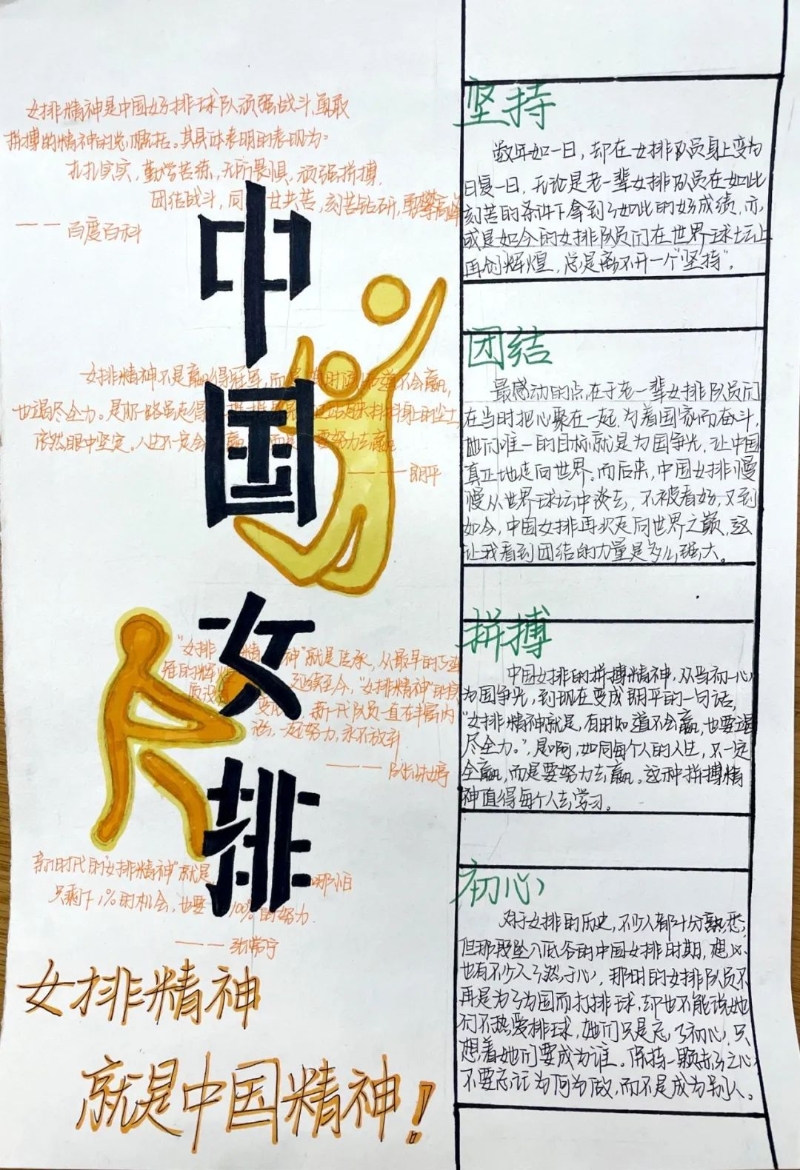 女排精神是中国女子排球队顽强战斗、勇敢
拼搏的精神的总概括。其具体表明的表现为：
扎扎实实，勤学苦练，无所畏惧，顽强拼搏，
团结战斗，同 甘共苦，刻苦钻研，勇攀高峰
——百度百科
中
国
女
排
女排精神不是赢得冠军，而是
不会赢，
也竭尽全力。是
眼中坚定。人生不一定会
——郎平
"女排 精神"就是传承，从最早的
延续至今，"女排精神"
新一代队员一直在
一起努力，永不放弃
新时代的"女排精神"就是 哪怕
只剩下1%的机会，也要 100%的努力.
——张常宁
女排精神
就是中国精神！
坚持
数年如一日，却在女排队员身上变为
日复一日，无论是老一辈女排队员在如此
刻苦的条件下拿到了如此的好成绩，亦
或是如今的女排队员们在世界球坛上
再创辉煌，总是离不开一个"坚持"。
团结
最感动的点在于老一辈女排队员们
在当时把心聚在一起，为着国家而奋斗，
她们唯一的目标就是为国争光，让中国
真正地走向世界。而后来，中国女排慢
慢从世界球坛中淡去，不被看好，又到
如今，中国女排再次走向世界之巅，这
让我看到团结的力量是多么强大。
拼搏
中国女排的拼搏精神，从当初一心
为国争光，到现在变成郎平的一句话，
"女排精神就是，有时知道不会赢，也要竭
尽全力。"是啊，如同每个人的人生，不一定
全赢，而是要努力去赢。这种拼搏精
神值得每个人去学习。
初心
对于女排的历史，不少人都十分熟悉，
但那段坠入低谷的中国女排时期，想必
也有不少人了然于心，那时的女排队员不
再是为了为国而打排球，却也不能说她
们不热爱排球，她们只是忘了初心，只
想着她们要成为谁。保持一颗赤子之心，
不要忘记为何而做，而不是成为别人。